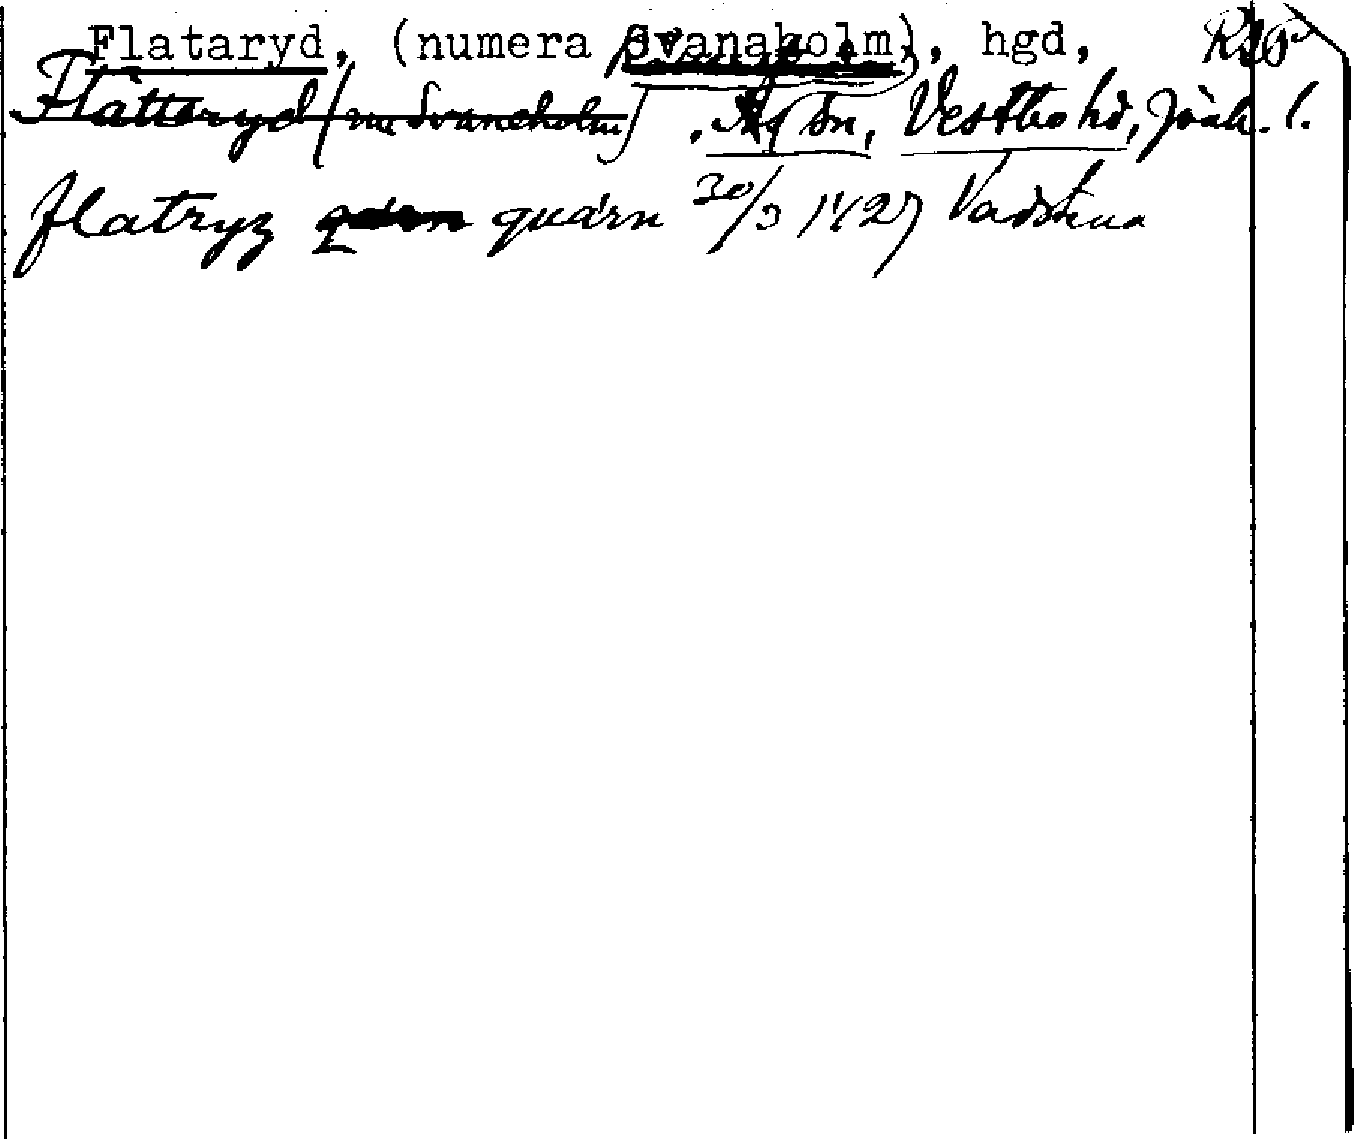 Flataryd, (numera Svanaholm), hgd, RAO
Flatteryd (nu Svaneholm), Ås sn, Vestbo hd, Jönk. l.
flatryz quärn 30/3 1427 Vadstena